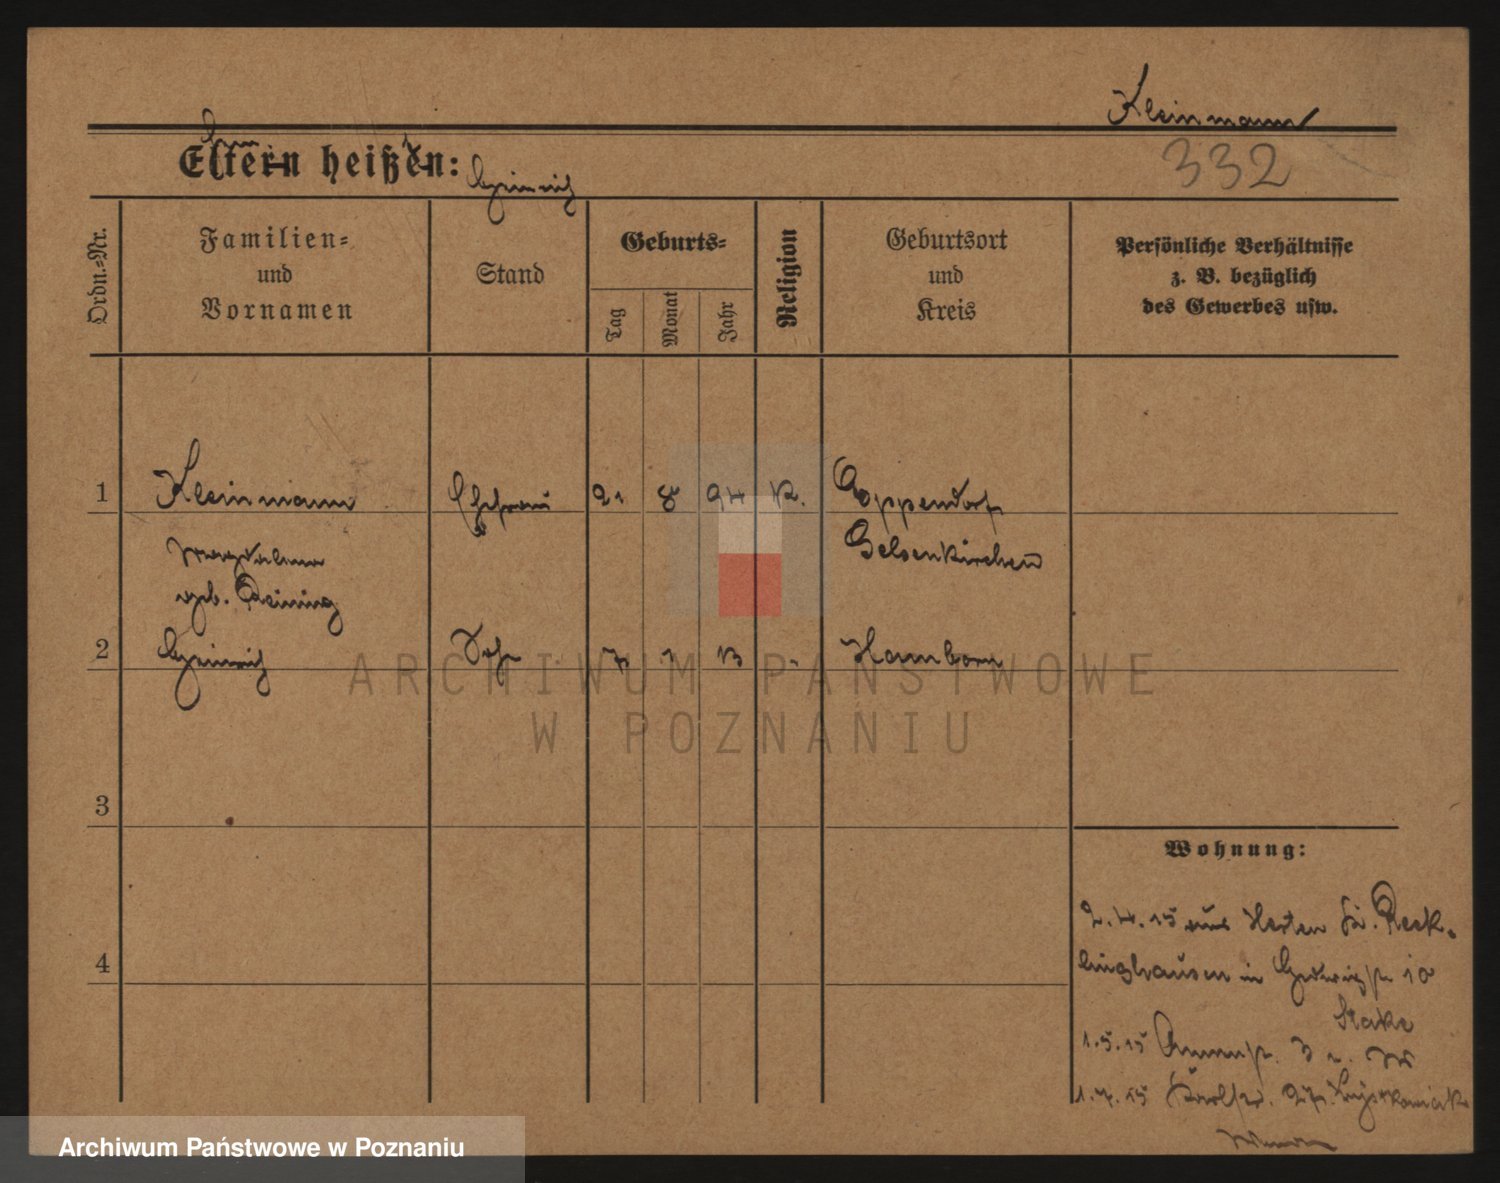 Kleinmann
332
Eltern heißen:
Heinrich
Ordn.=Nr.
Familien=
und
Vornamen
Stand
Geburts=
Tag
Monat
Jahr
Religion
Geburtsort
und
Kreis
Persönliche Verhältnisse
z. B. bezüglich
des Gewerbes usw.
1 Kleinmann Ehefrau 21 8 94 K. Coppendorf
Gelsenkirchen
Magdalena
geb. Deining
2 Heinrich Sohn 7 1 13 Hamborn
3
Wohnung:
4
2.4.15 aus Herten Kr. Reck-
linghausen in Hedwigstr 10
Stake
1.5.15 Annenstr. 3
1.7.15 Karlstr. 27
ARCHIWUM PAŃSTWOWE
W POZNANIU
Archiwum Państwowe w Poznaniu